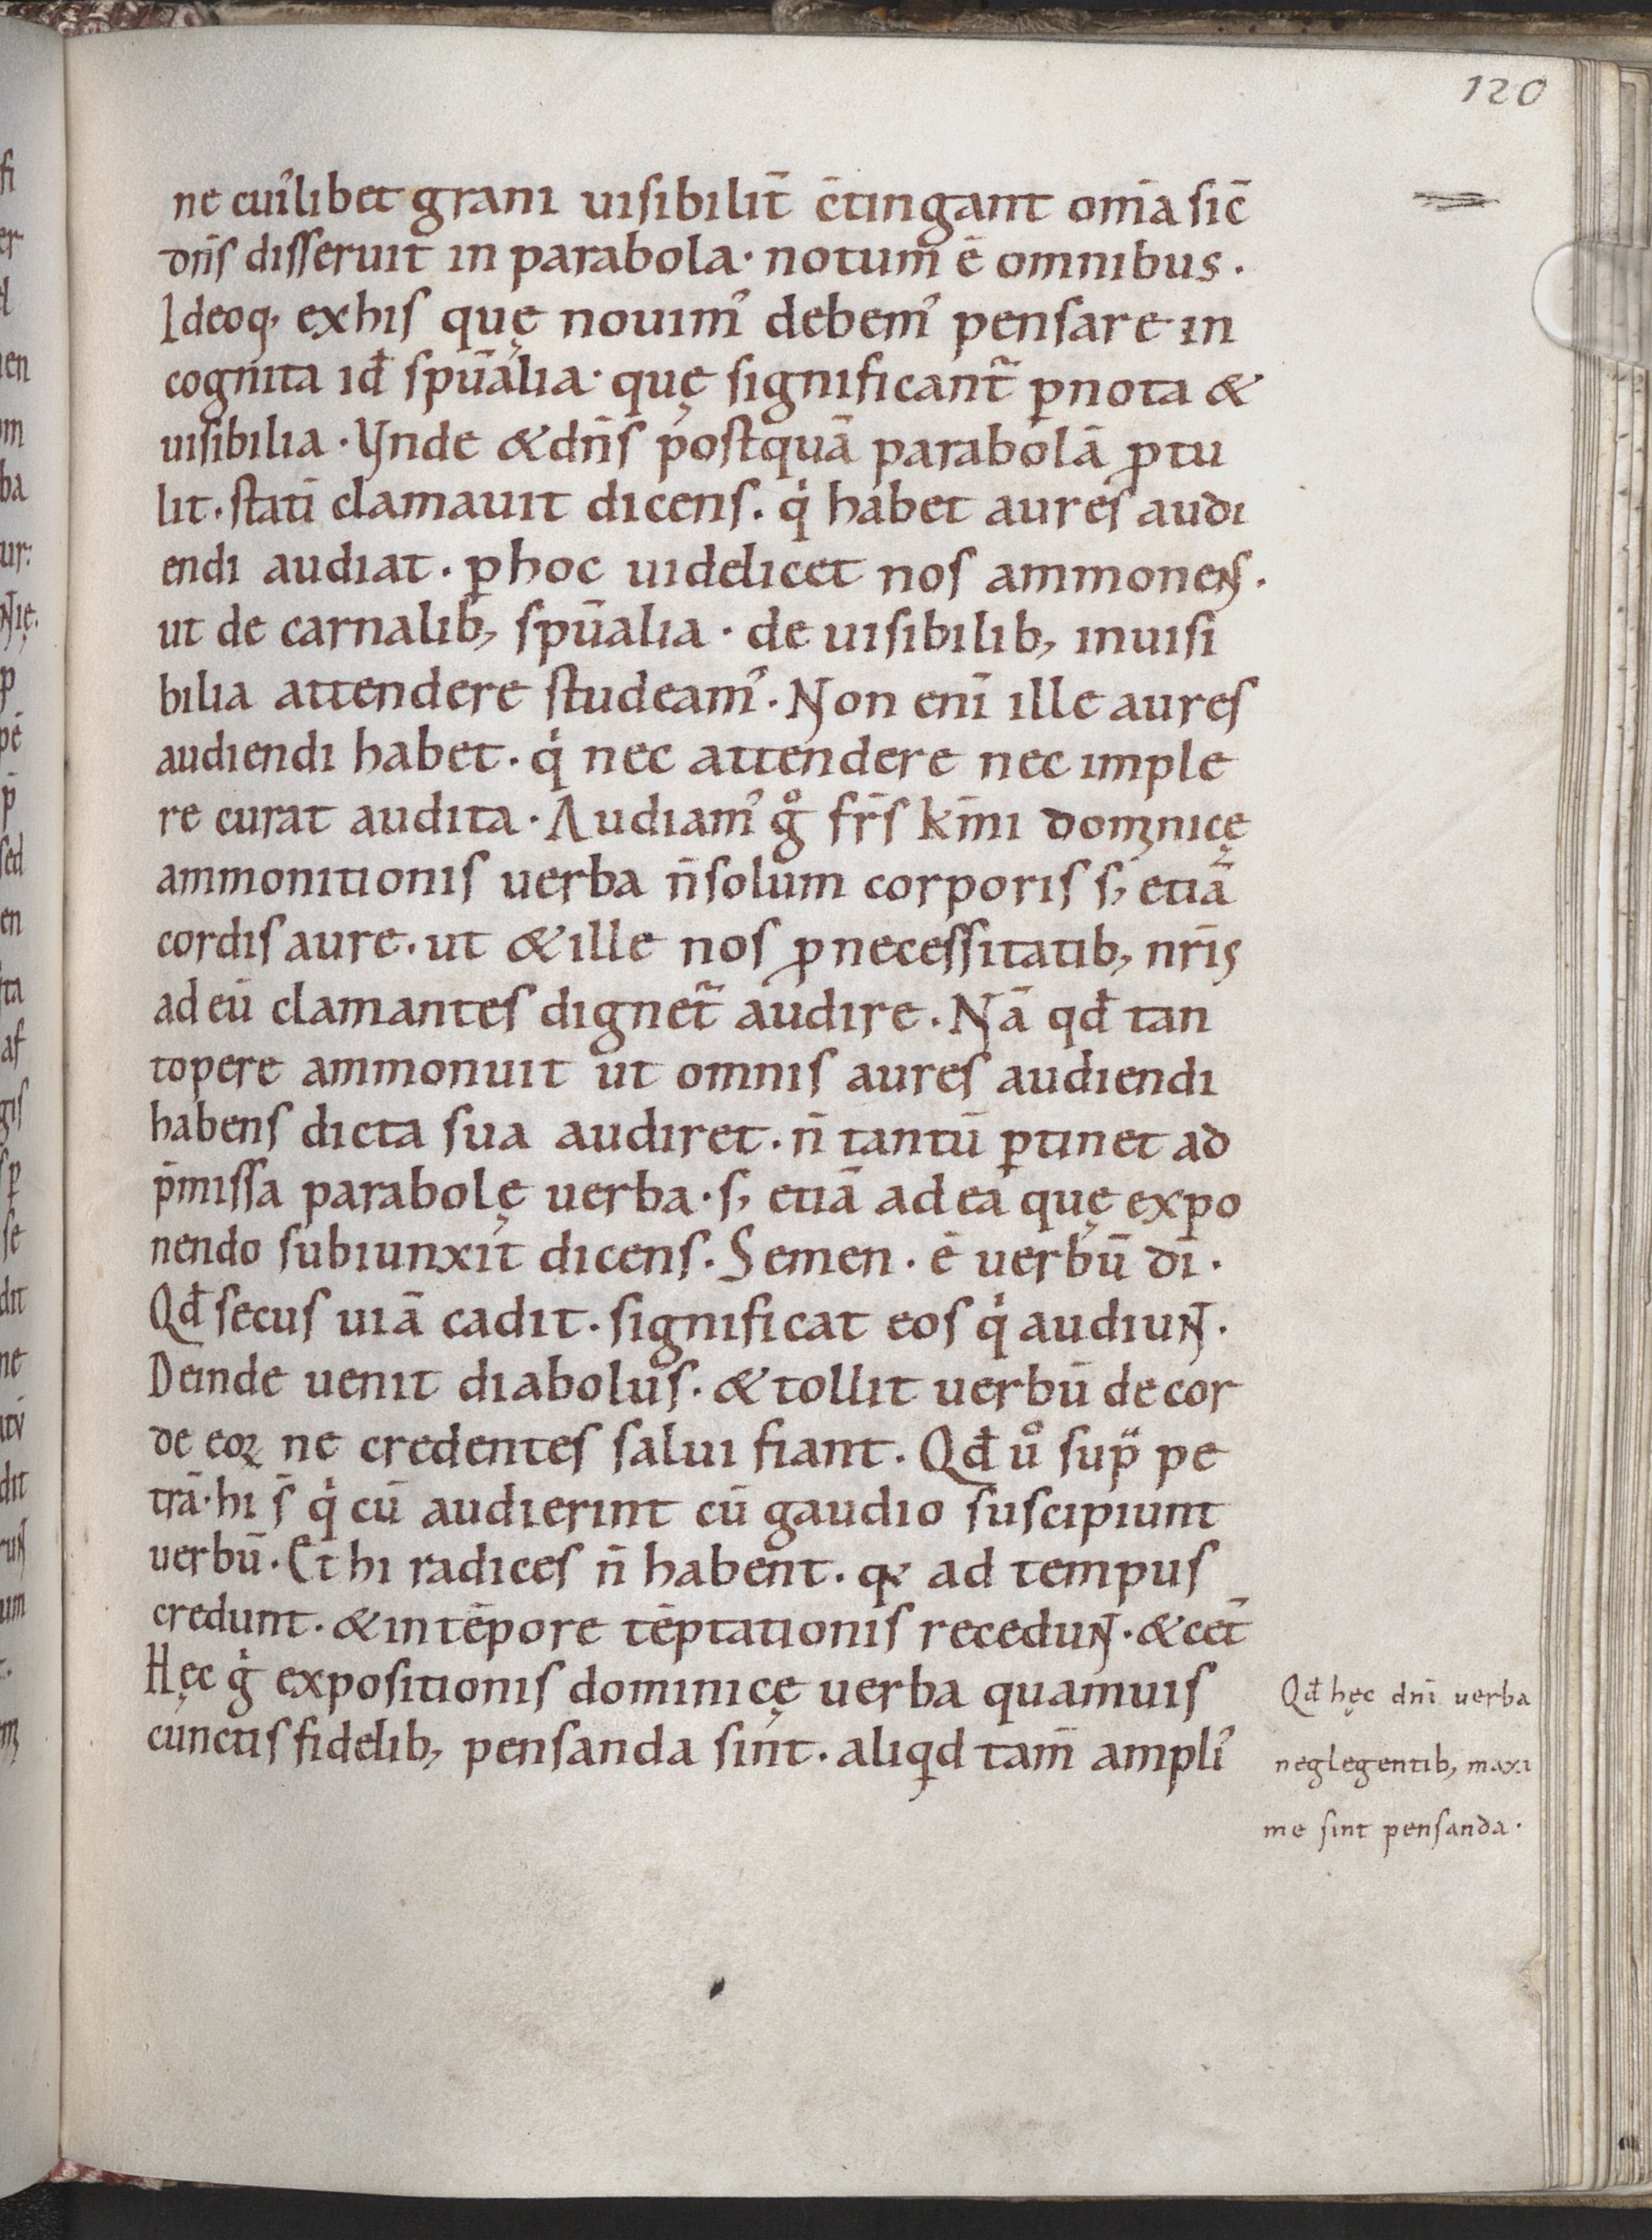 120
ne cui᷒libet grani uisibilit̄ c̄tingant om̄a sic̄
dn̄s disseruit in parabola· notum ē omnibus.
Ideoq, ex his quę nouim᷒ debem᷒ pensare in
cognita id̄ spūalia· quę significant᷑ ꝑ nota &
uisibilia. Vnde & dn̄s postquā parabolā ꝓtu
lit. statī clamauit dicens. q̇ habet aures audi
endi audiat. ꝑ hoc uidelicet nos ammonens.
ut de carnalib, spūalia. de uisibilib, inuisi
bilia attendere studeam᷒. Non enī ille aures
audiendi habet. q̇ nec attendere nec imple
re curat audita. Audiam᷒ g̊ frs̄ km̄i dominicę
ammonitionis uerba n̄ solum corporis s, etiā
cordis aure. ut & ille nos ꝓ necessitatib, nr̄is
ad eū clamantes dignet᷑ audire. Nā qd̄ tan
topere ammonuit ut omnis aures audiendi
habens dicta sua audiret. n̄ tantū ꝑtinet ad
p̄missa parabolę uerba. s, etiā ad ea quę expo
nendo subiunxit dicens. Semen. ē uerbū dī.
Qd̄ secus uiā cadit. significat eos q̇ audiunt.
Deinde uenit diabolus. & tollit uerbū de cor
de eoꝝ ne credentes salui fiant. Qd̄ ů sup̄ pe
trā. hi s̄ q̇ cū audierint cū gaudio suscipiunt
uerbū. Et hi radices n̄ habent. qꝛ ad tempus
credunt. & in tēpore tēptationis recedunt. & cet̄
Hęc g̍ expositionis dominicę uerba quamuis
cunctis fidelib, pensanda sint. aliqd tam̄ ampli᷒
Qd̄ hęc dnī uerba
neglegentib, maxi
me sint pensanda.